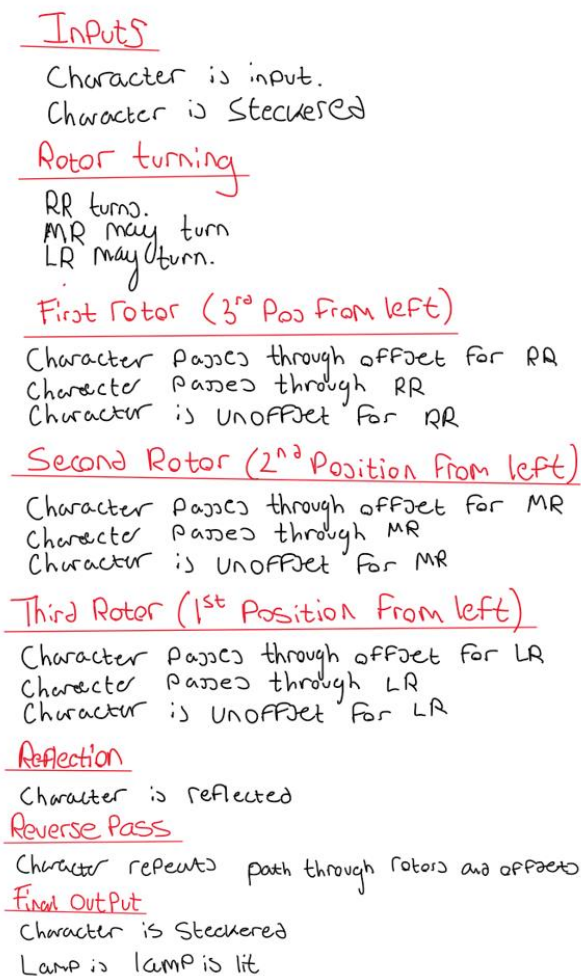 Inputs
Character is input.
Character is Steckered
Rotor turning
RR turns.
MR may turn
LR may turn.
First rotor (3rd Pos From left)
Character Passes through offset for RR
Character Passes through RR
Character is UNOFFset For RR
Second Rotor (2nd Position From left)
Character Passes through offset for MR
Character Passes through MR
Character is UNOFFset For MR
Third Rotor (1st Position From left)
Character Passes through offset for LR
Character Passes through LR
Character is UNOFFset For LR
Reflection
Character is reflected
Reverse Pass
Character repeats path through rotors and offsets
Final Output
Character is Steckered
Lamp is lamp is lit